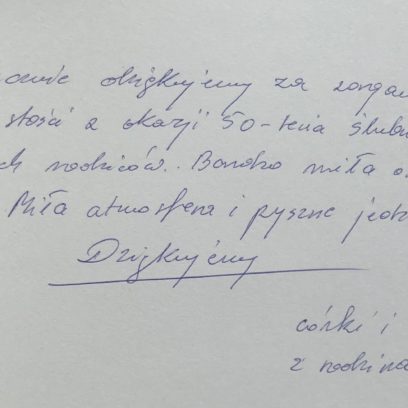 ocznie dziękujemy za zorgan
stości z okazji 50-lecia ślubu
ch rodziców. Bardzo miła o
Miła atmosfera i pyszne jedz
Dziękujemy
córki i
z rodzina